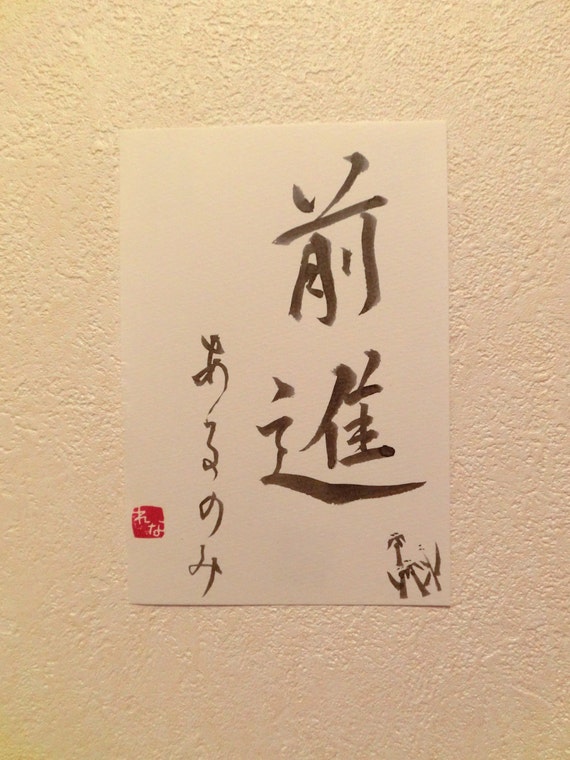 前進
あるのみ
れな